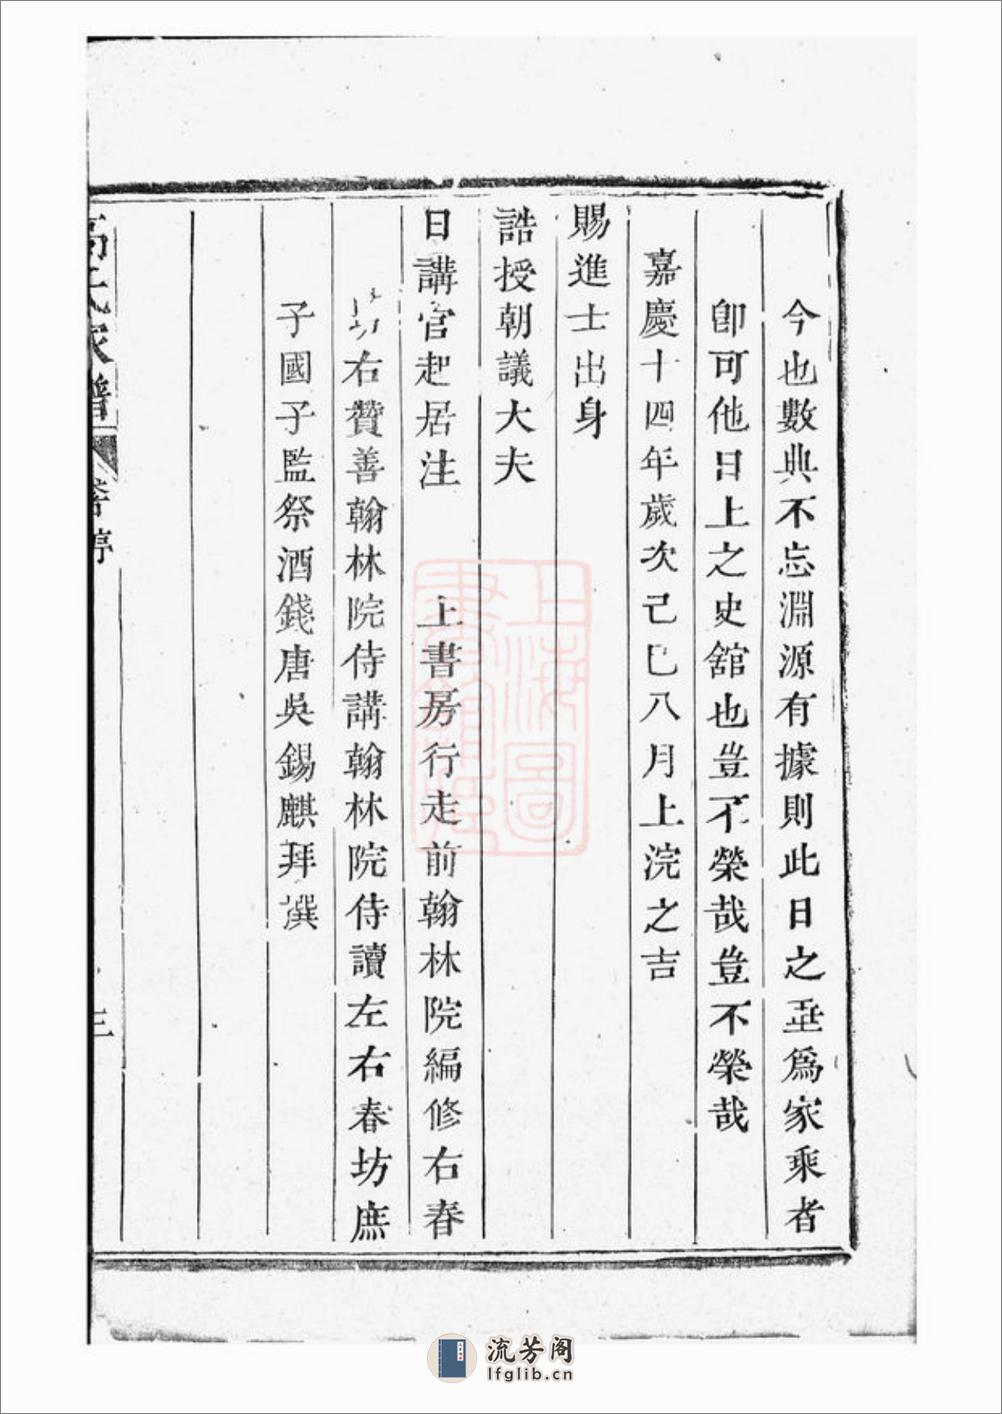 今也數典不忘淵源有據則此日之垂爲家乘者
卽可他日上之史舘也豈不榮哉豈不榮哉
嘉慶十四年歲次己巳八月上浣之吉
賜進士出身
誥授朝議大夫
日講官起居注　上書房行走前翰林院編修右春
坊右贊善翰林院侍講翰林院侍讀左右春坊庶
子國子監祭酒錢唐吳錫麒拜撰
氏家譜
三
上海圖
書館藏
流芳阁
lfglib.cn